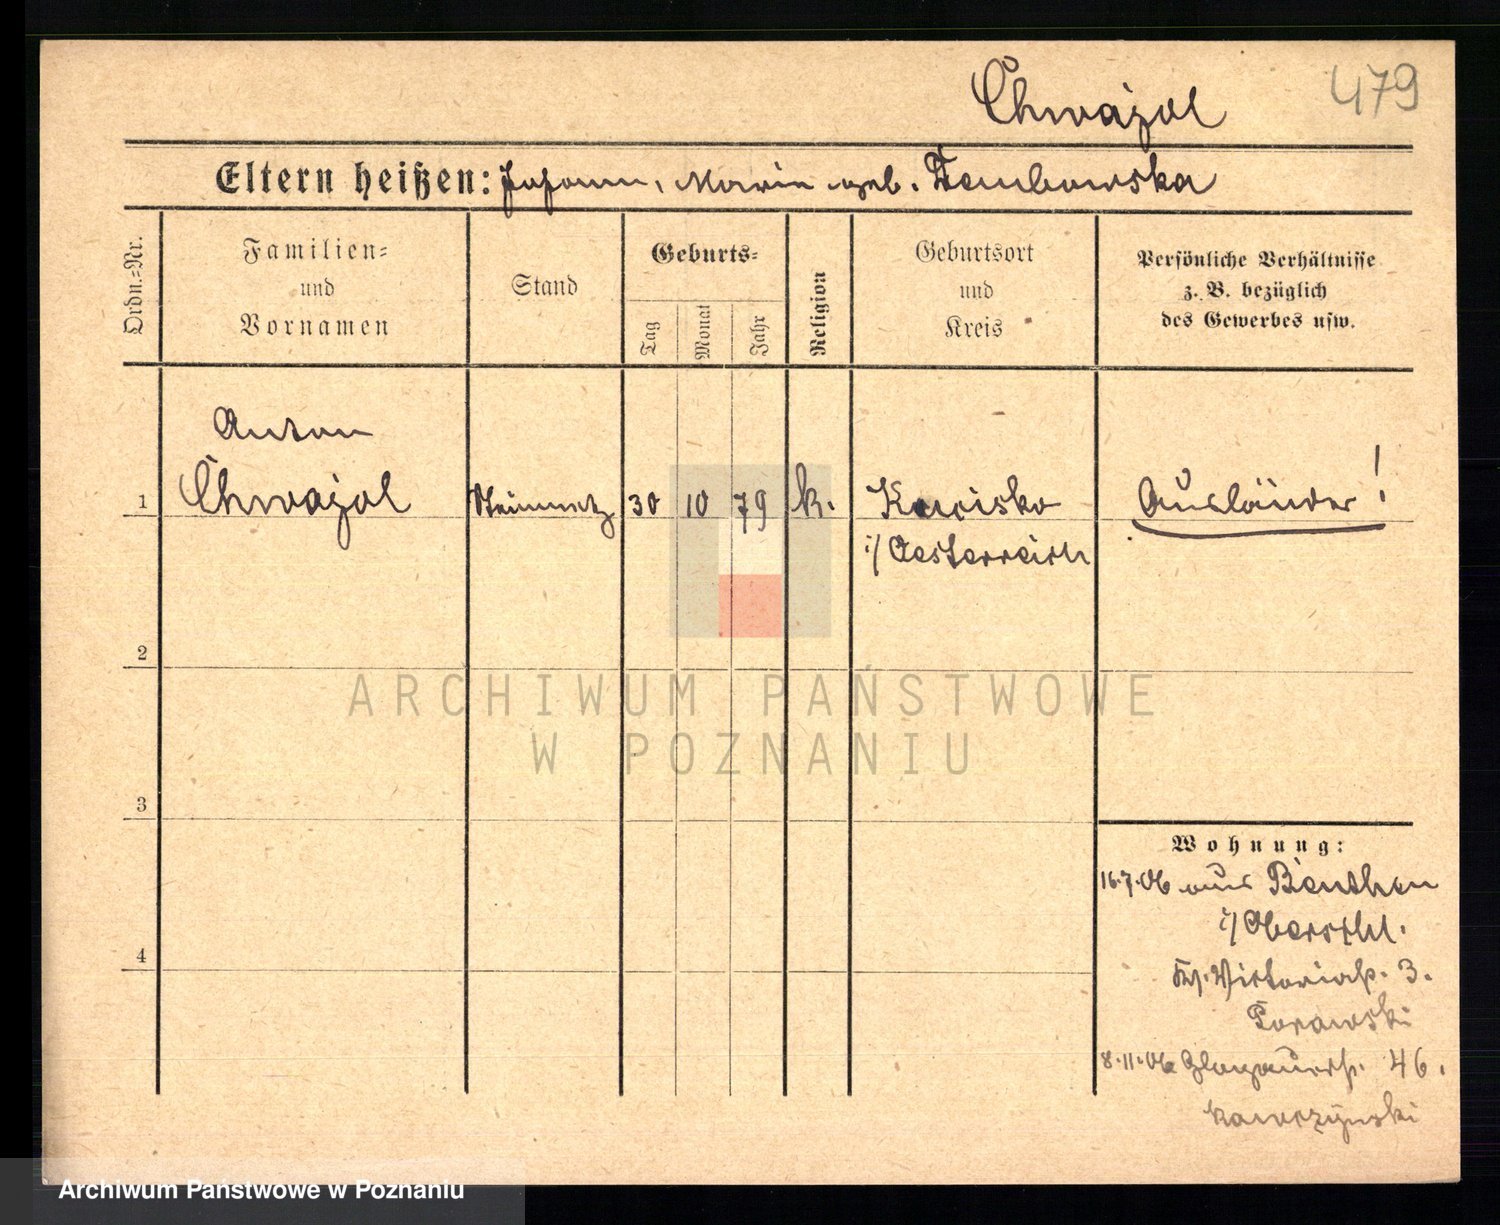 Chwajol 479
Eltern heißen: Johann, Maria geb. Dembowska
Ordn.-Nr.
Familien-
und
Vornamen
Stand
Geburts-
Tag
Monat
Jahr
Religion
Geburtsort
und
Kreis
Persönliche Verhältnisse
z. B. bezüglich
des Gewerbes usw.
Anton
1 Chwajol Steinmetz 30 10 79 k. Ausländer!
i/ Oesterreich
2
ARCHIWUM PAŃSTWOWE
W POZNANIU
3
Wohnung:
16.7.06 aus Beuthen
i/ Oberschl.
Viktoriastr. 3.
4
8.11.06 Glogauerstr. 46.
Kawczynski
Archiwum Państwowe w Poznaniu